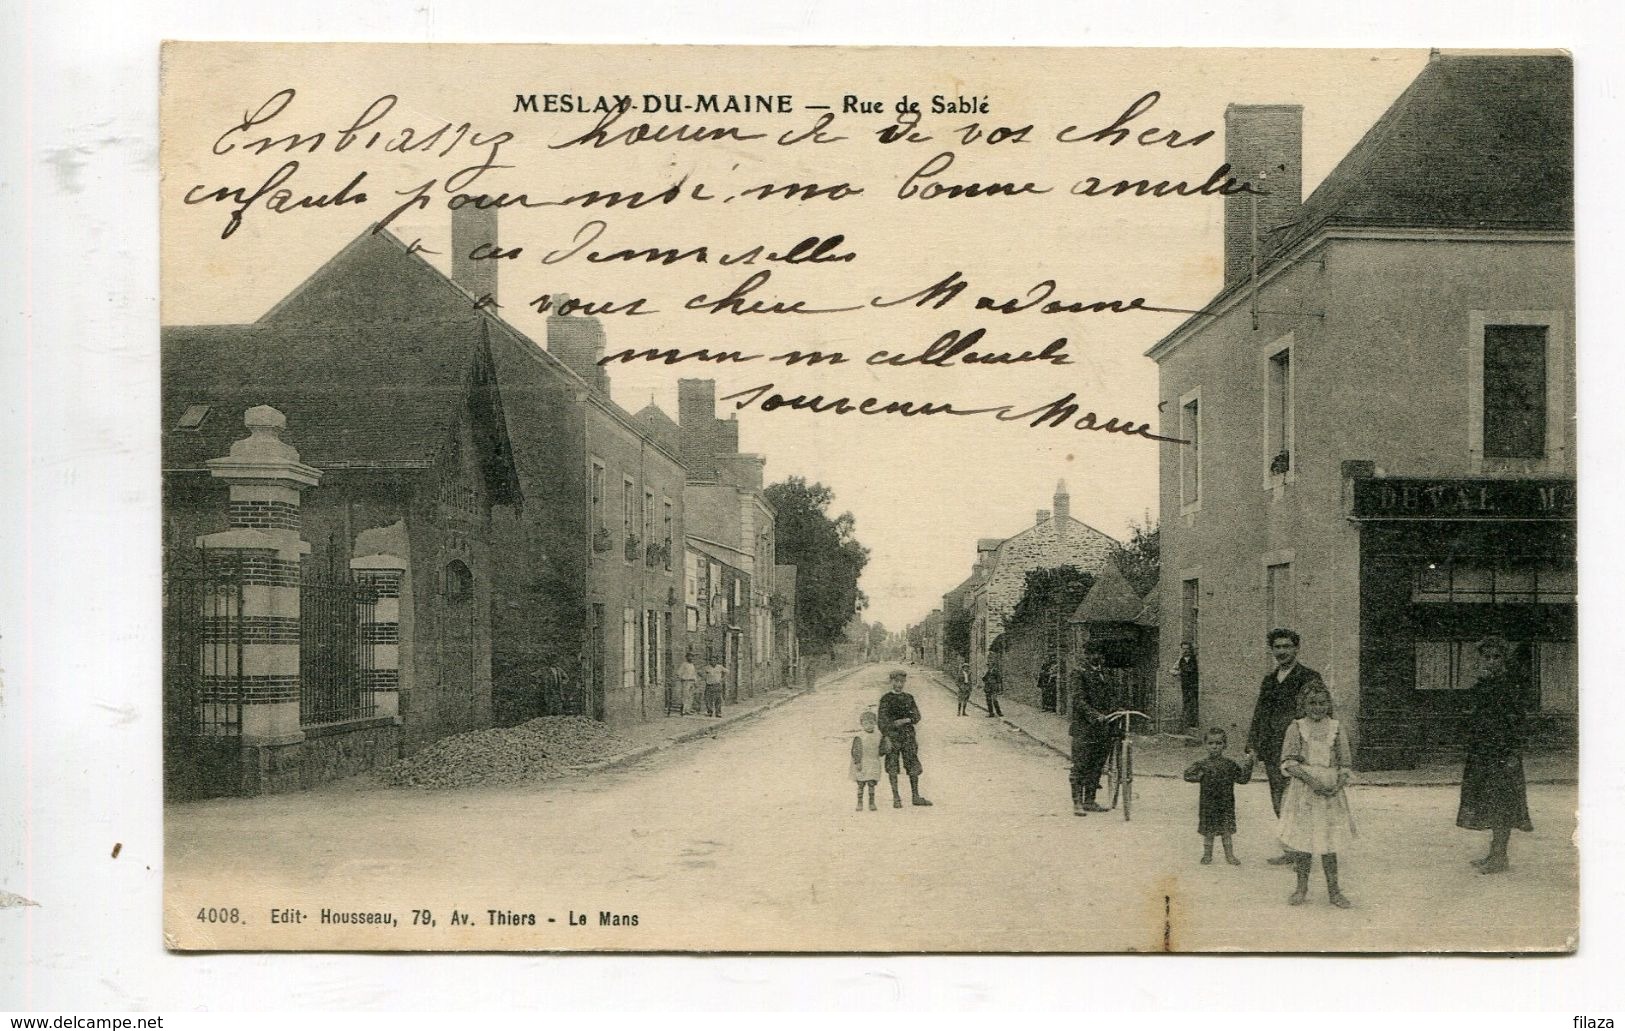 MESLAY-DU-MAINE — Rue de Sablé
Embrassez de vos chers
enfants pour moi, ma bonne amitié
a ces demoiselles
a vous chere Madame
mon meilleurs
souvenir Marie
DUVAL
4008. Edit· Housseau, 79, Av. Thiers - Le Mans
www.delcampe.net
filaza